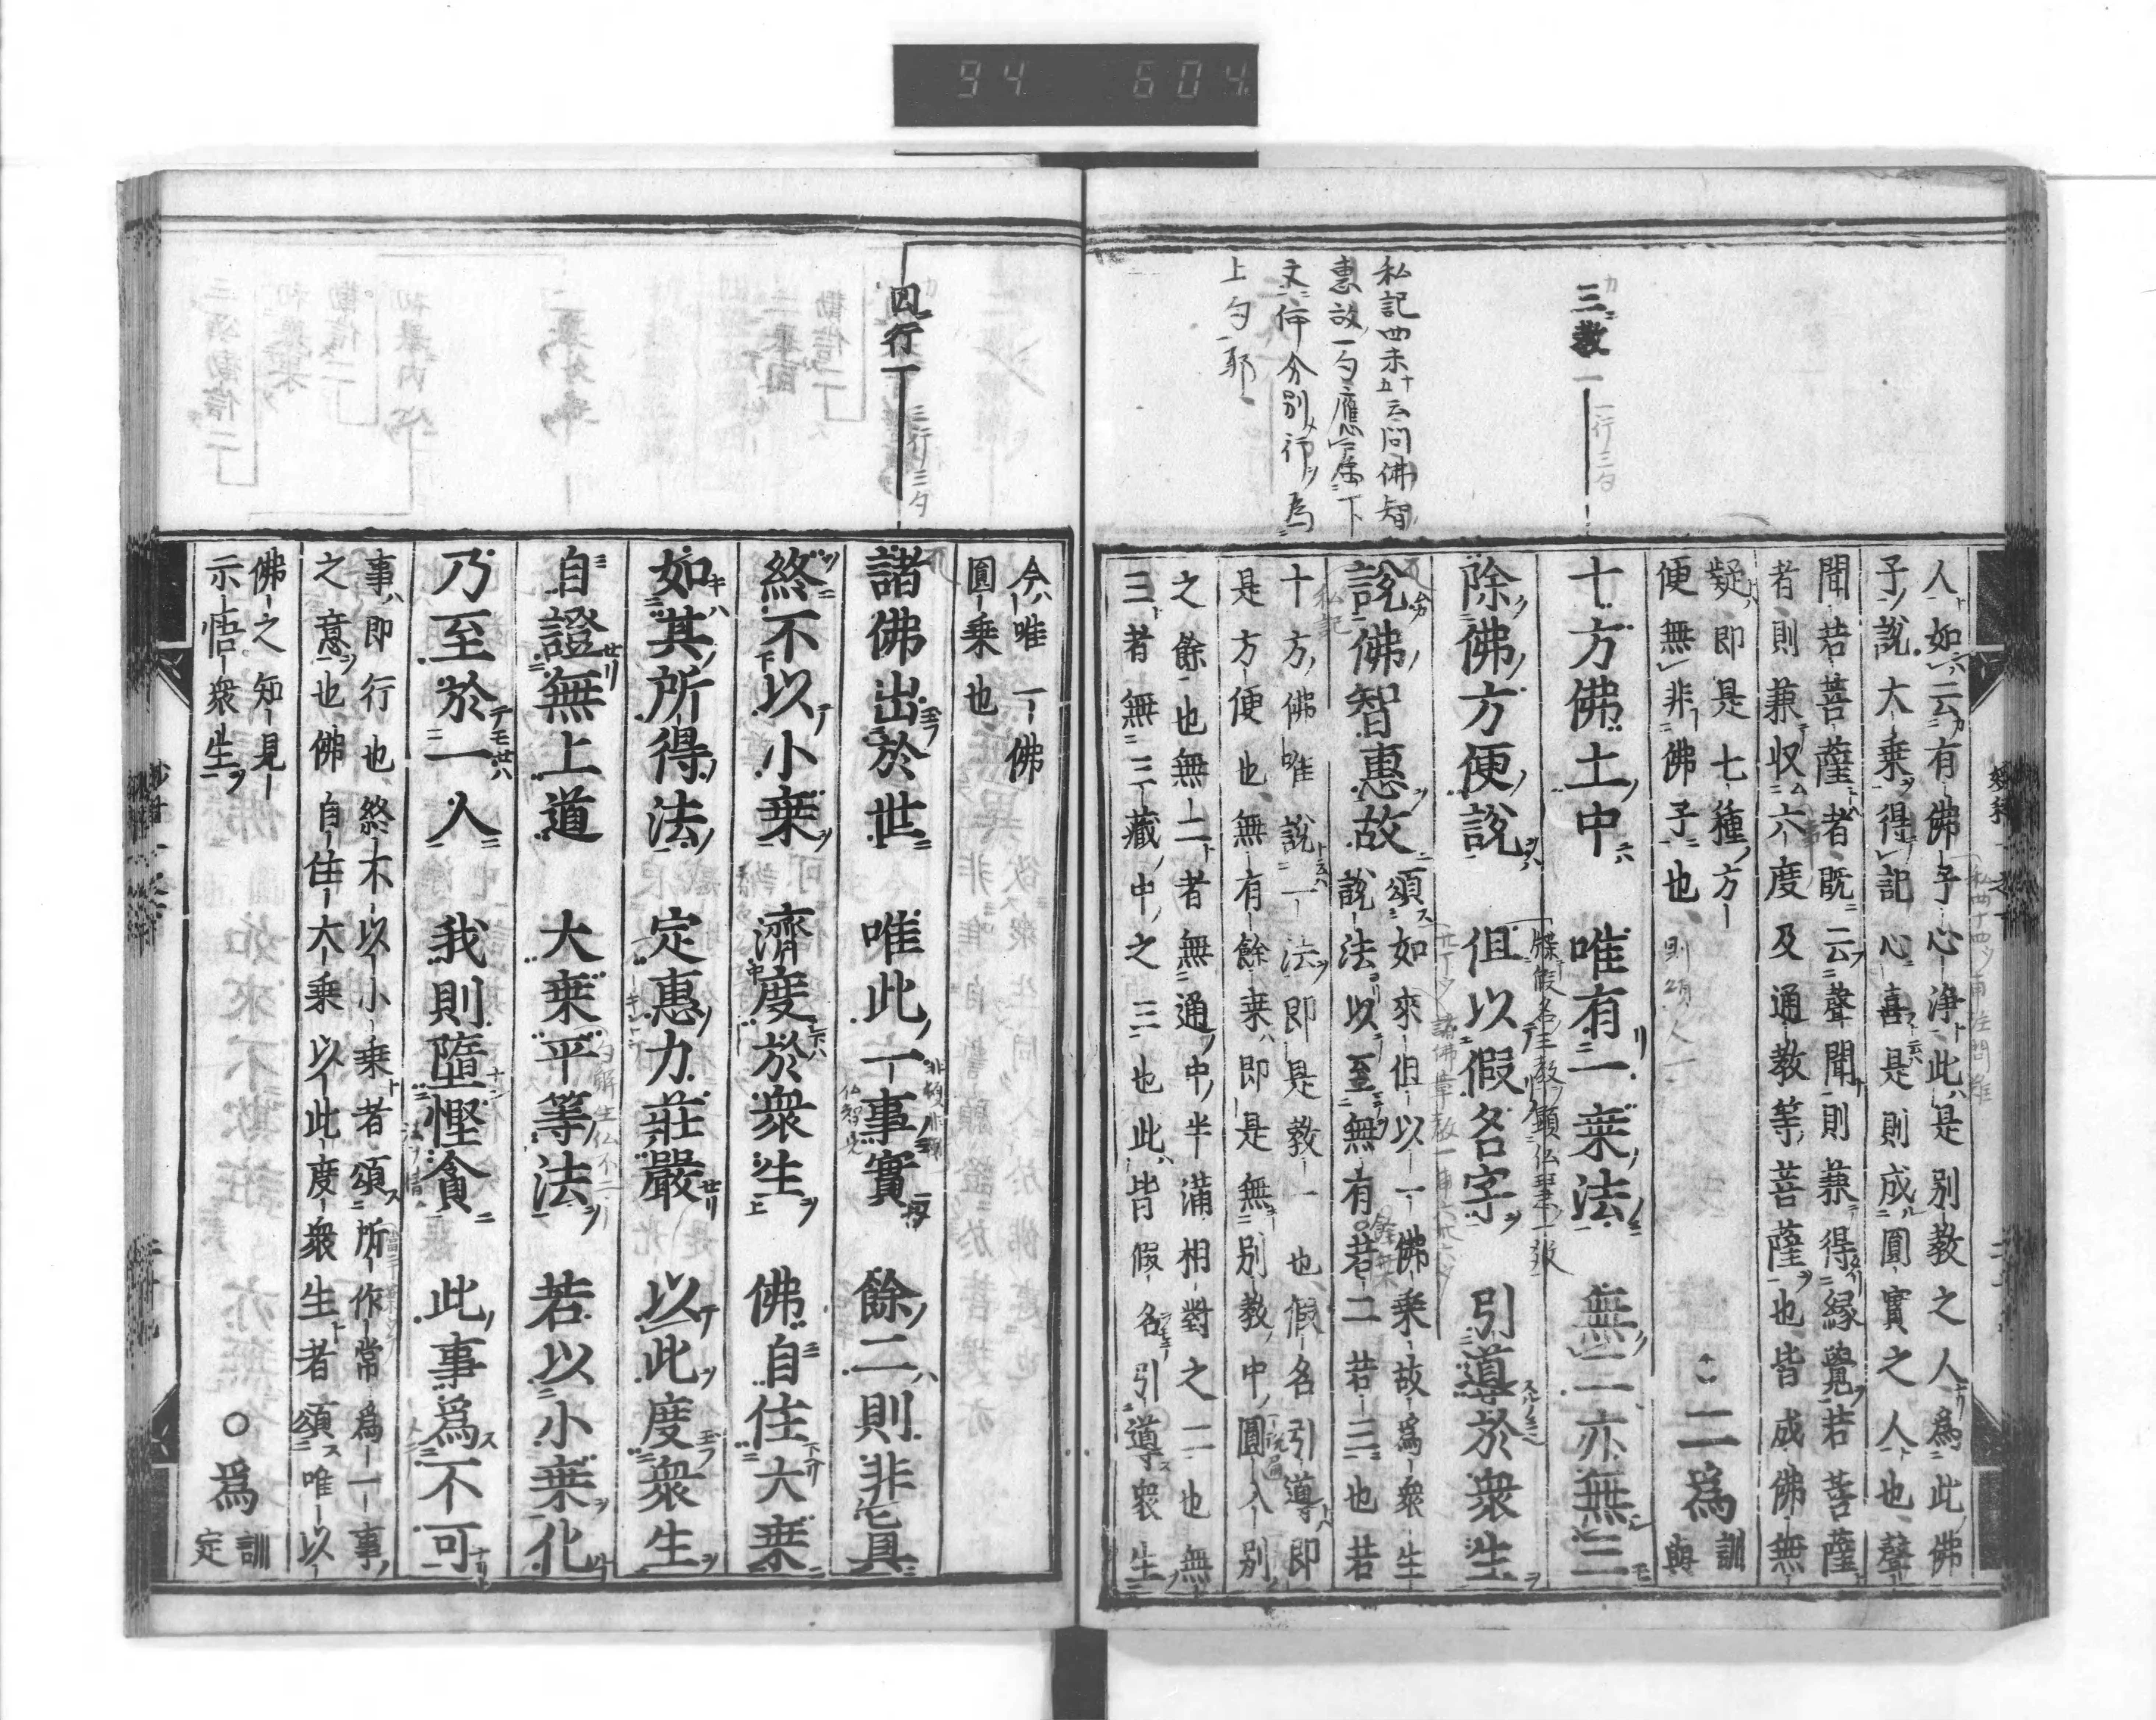 94 604
三教一
一行三句
私記四末五十云問佛智
惠故一句應令屬下
文何分別行爲
上句耶
人如云有佛子心淨此是別教之人爲此佛
子說大乘得記心喜是則成圓實之人也聲
聞若菩薩者既云聲聞則兼得緣覺若菩薩
者則兼収六度及通教等菩薩也皆成佛無
疑即是七種方
便無非佛子也
二爲
訓
與
十方佛土中 唯有一乗法 無二亦無三
除佛方便說 但以假名字 引導於衆生
說佛智惠故
頌如來但以一佛乗故爲衆生
說法以至無有若二若三也若
餘乗
十方佛唯說一法即是教一也假名引導即
是方便也無有餘乗即是無別教中圓入別
之餘也無二者無通中半滿相對之二也無
三者無三藏中之三也此皆假名引導衆生
四行一
三行三句
今唯一佛
圓乗也
諸佛出於世 唯此一事實 餘二則非眞
終不以小乗 濟度於衆生 佛自住大乗
如其所得法 定惠力莊嚴 以此度衆生
自證無上道 大乗平等法 若以小乗化
乃至於一人 我則墮慳貪 此事爲不可
事即行也終不以小乗者頌所作常爲一事
之意也佛自住大乗以此度衆生者頌唯以
佛之知見
示悟衆生
○爲
訓
定